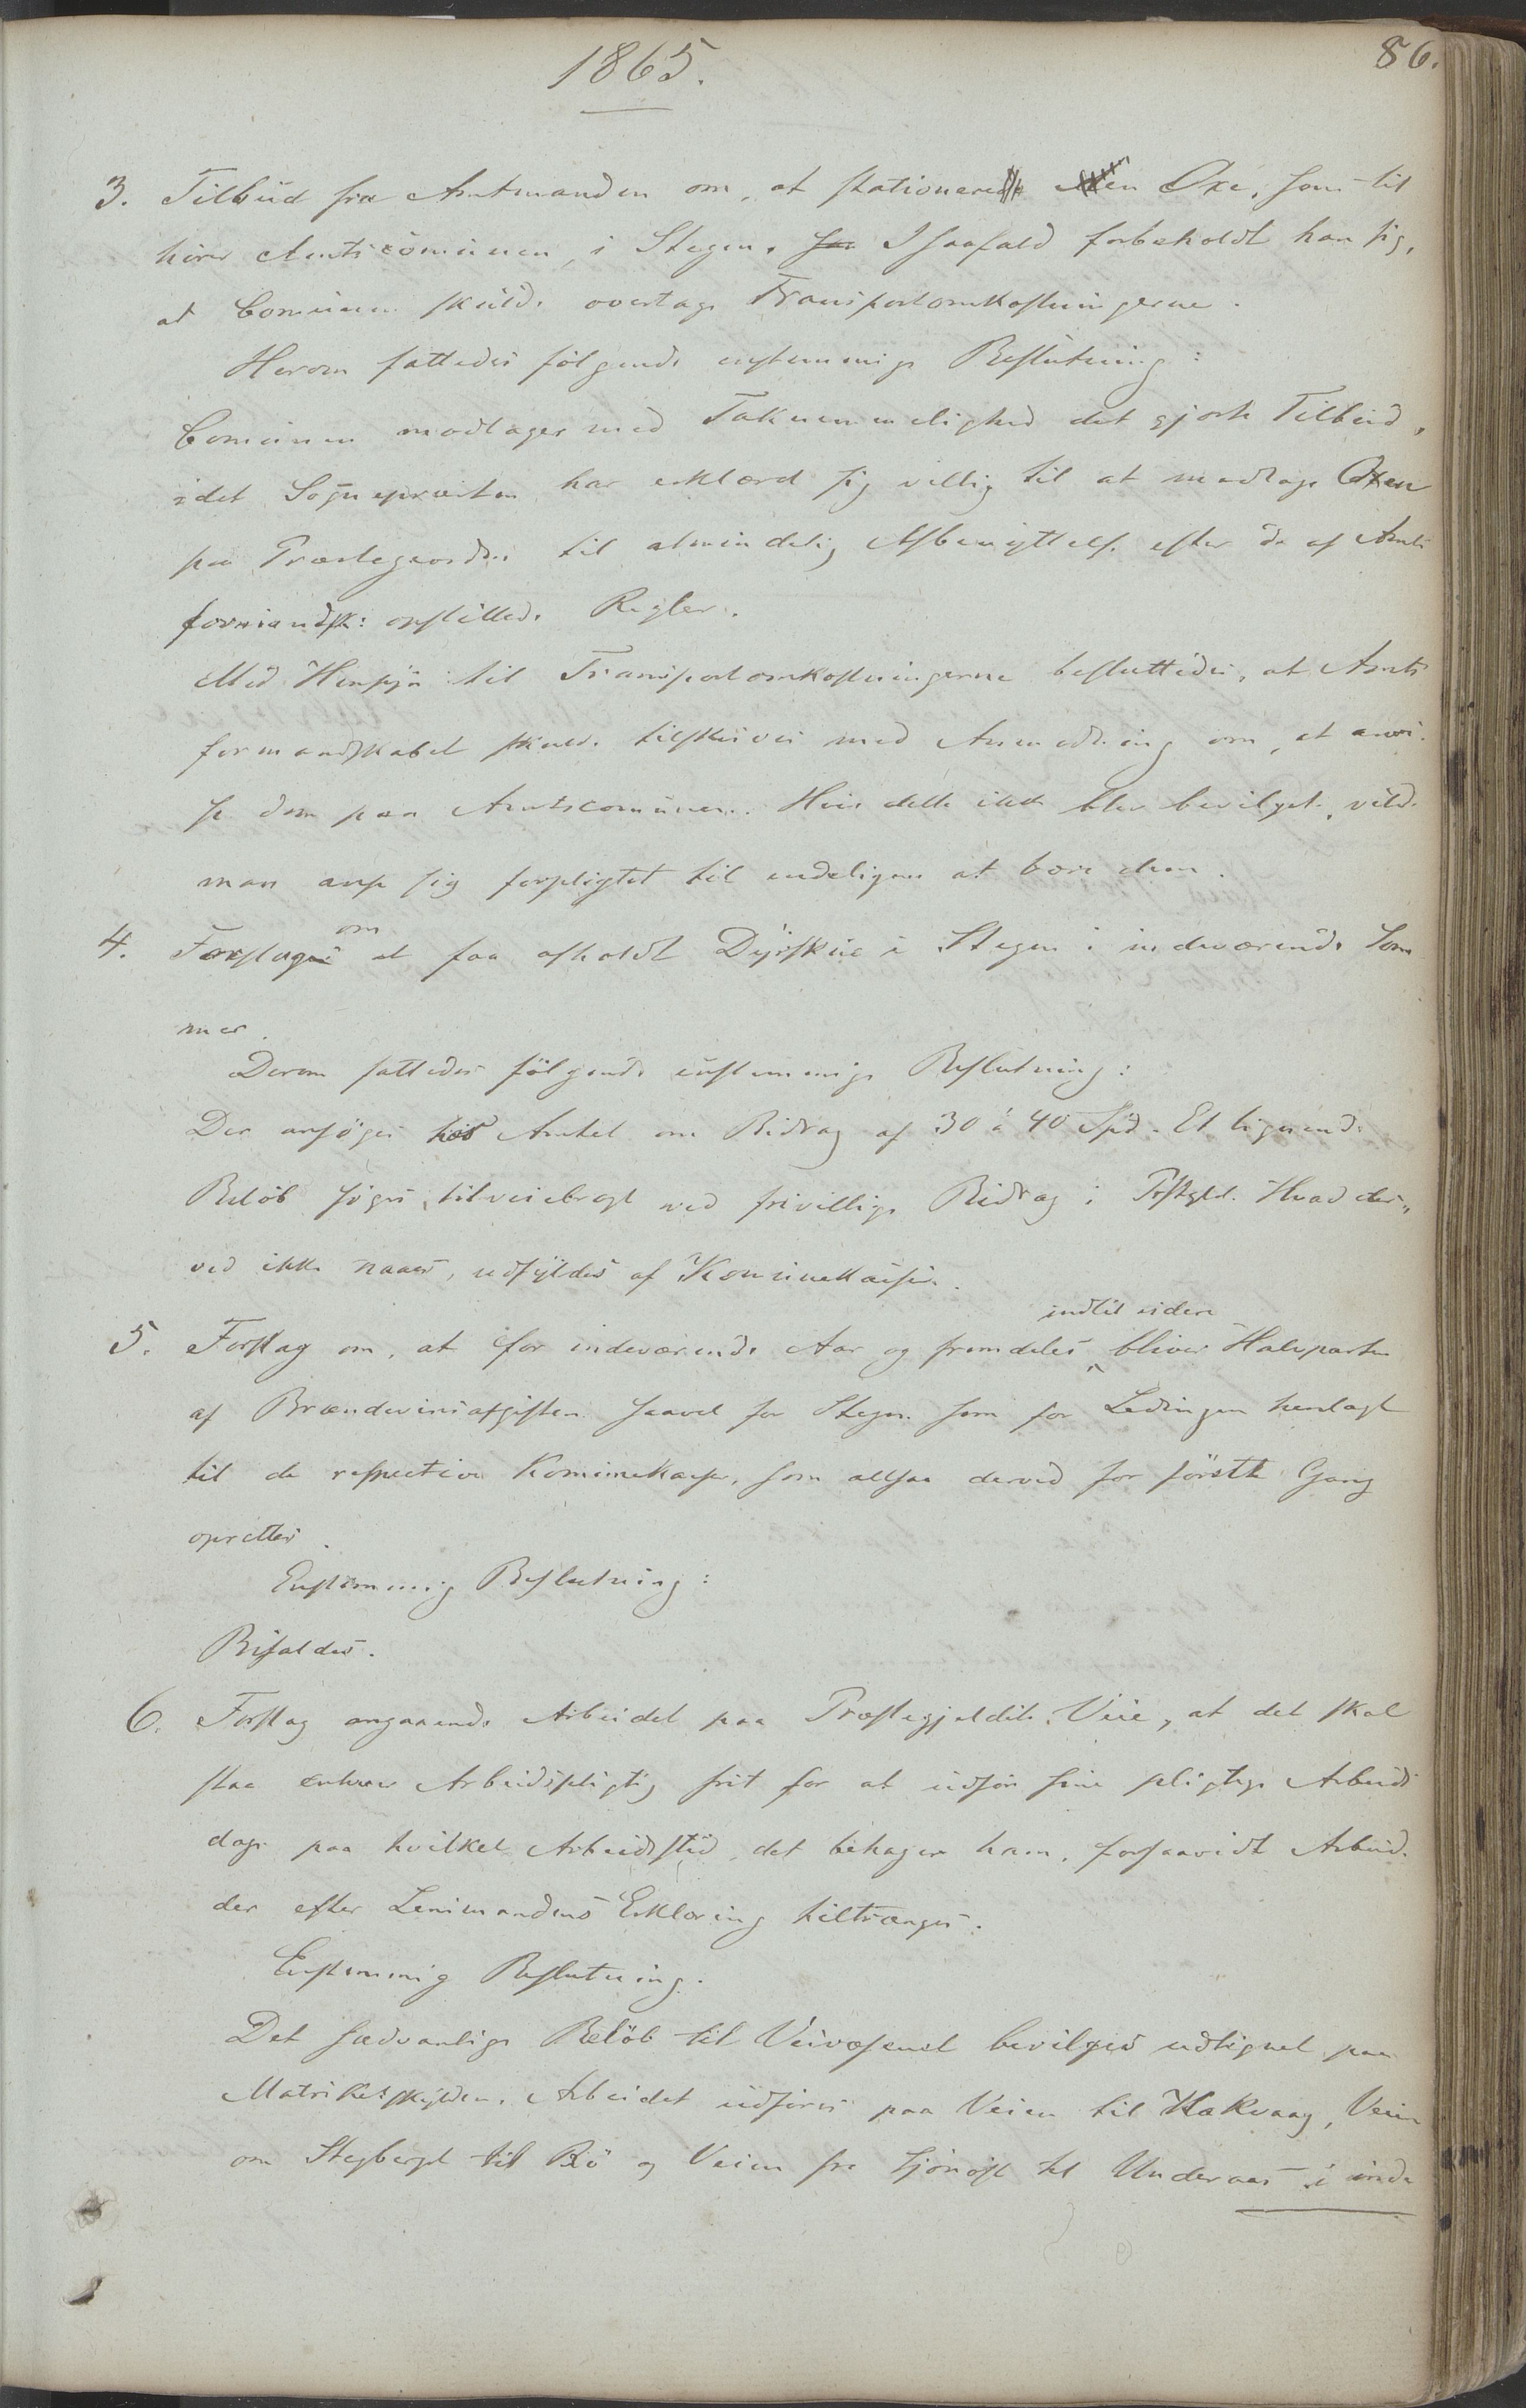 1865.
86.
3. Tilbud fra Amtmanden om, at stationere en Oxe, som til
hører Amtscomunen, i Stegen. I saafald forbeholdt han sig,
at Comunen skulde overtage Transportomkostningerne.
Herom fattedes følgende enstemmige Beslutning:
Comunen modtager med Taknemmelighed det gjorte Tilbud,
idet Sognepræsten har erklæred sig villig til at modtage Oxen
paa Præstegaarden til almindelig Afbenyttelse efter de af Amts
formandsk: opstillede Regler.
Med Hensyn til Transportomkostningerne besluttedes, at Amts
formandskabet skulde tilskrives med Anmodning om, at anvi-
se dem paa Amtscomunen. Hvis dette ikke blev bevilget, vilde
man anse sig forpligtet til endeligen at bære dem.
4. Forslag om at faa afholdt Dyrskue i Stegen i indeværende Som
mer.
Derom fattedes følgende enstemmige Beslutning:
Der ansøges hos Amtet om Bidrag af 30 à 40 Spd. Et lignende
Beløb søges tilveiebragt ved frivillige Bidrag i Prstgld. Hvad der„
ved ikke naaes, udfyldes af Komunekassen.
5. Forslag om, at for indeværende Aar og fremdeles indtil videre bliver Halvparten
af Brændeviinsafgiften saavel for Stegen som for Lødingen henlagt
til de respective Komunekasser, som altsaa derved for første Gang
oprettes.
Enstemmig Beslutning:
Bifaldes.
6. Forslag angaaende Arbeidet paa Præstegjeldets Veie, at det skal
staa enhver Arbeidspligtig frit for at udføre sine pligtige Arbeids
dage paa hvilket Arbeidssted det behager ham, forsaavidt Arbeide
der efter Lensmandens Erklæring tiltrænges.
Enstemmig Beslutning.
Det sædvanlige Beløb til Veivæsenet bevilges udlignet paa
Matrikelskylden. Arbeidet udføres paa Veien til Hakvaag, Veien
om Stegberget til Bø og Veien fra Tjønøst til Underaas i inde